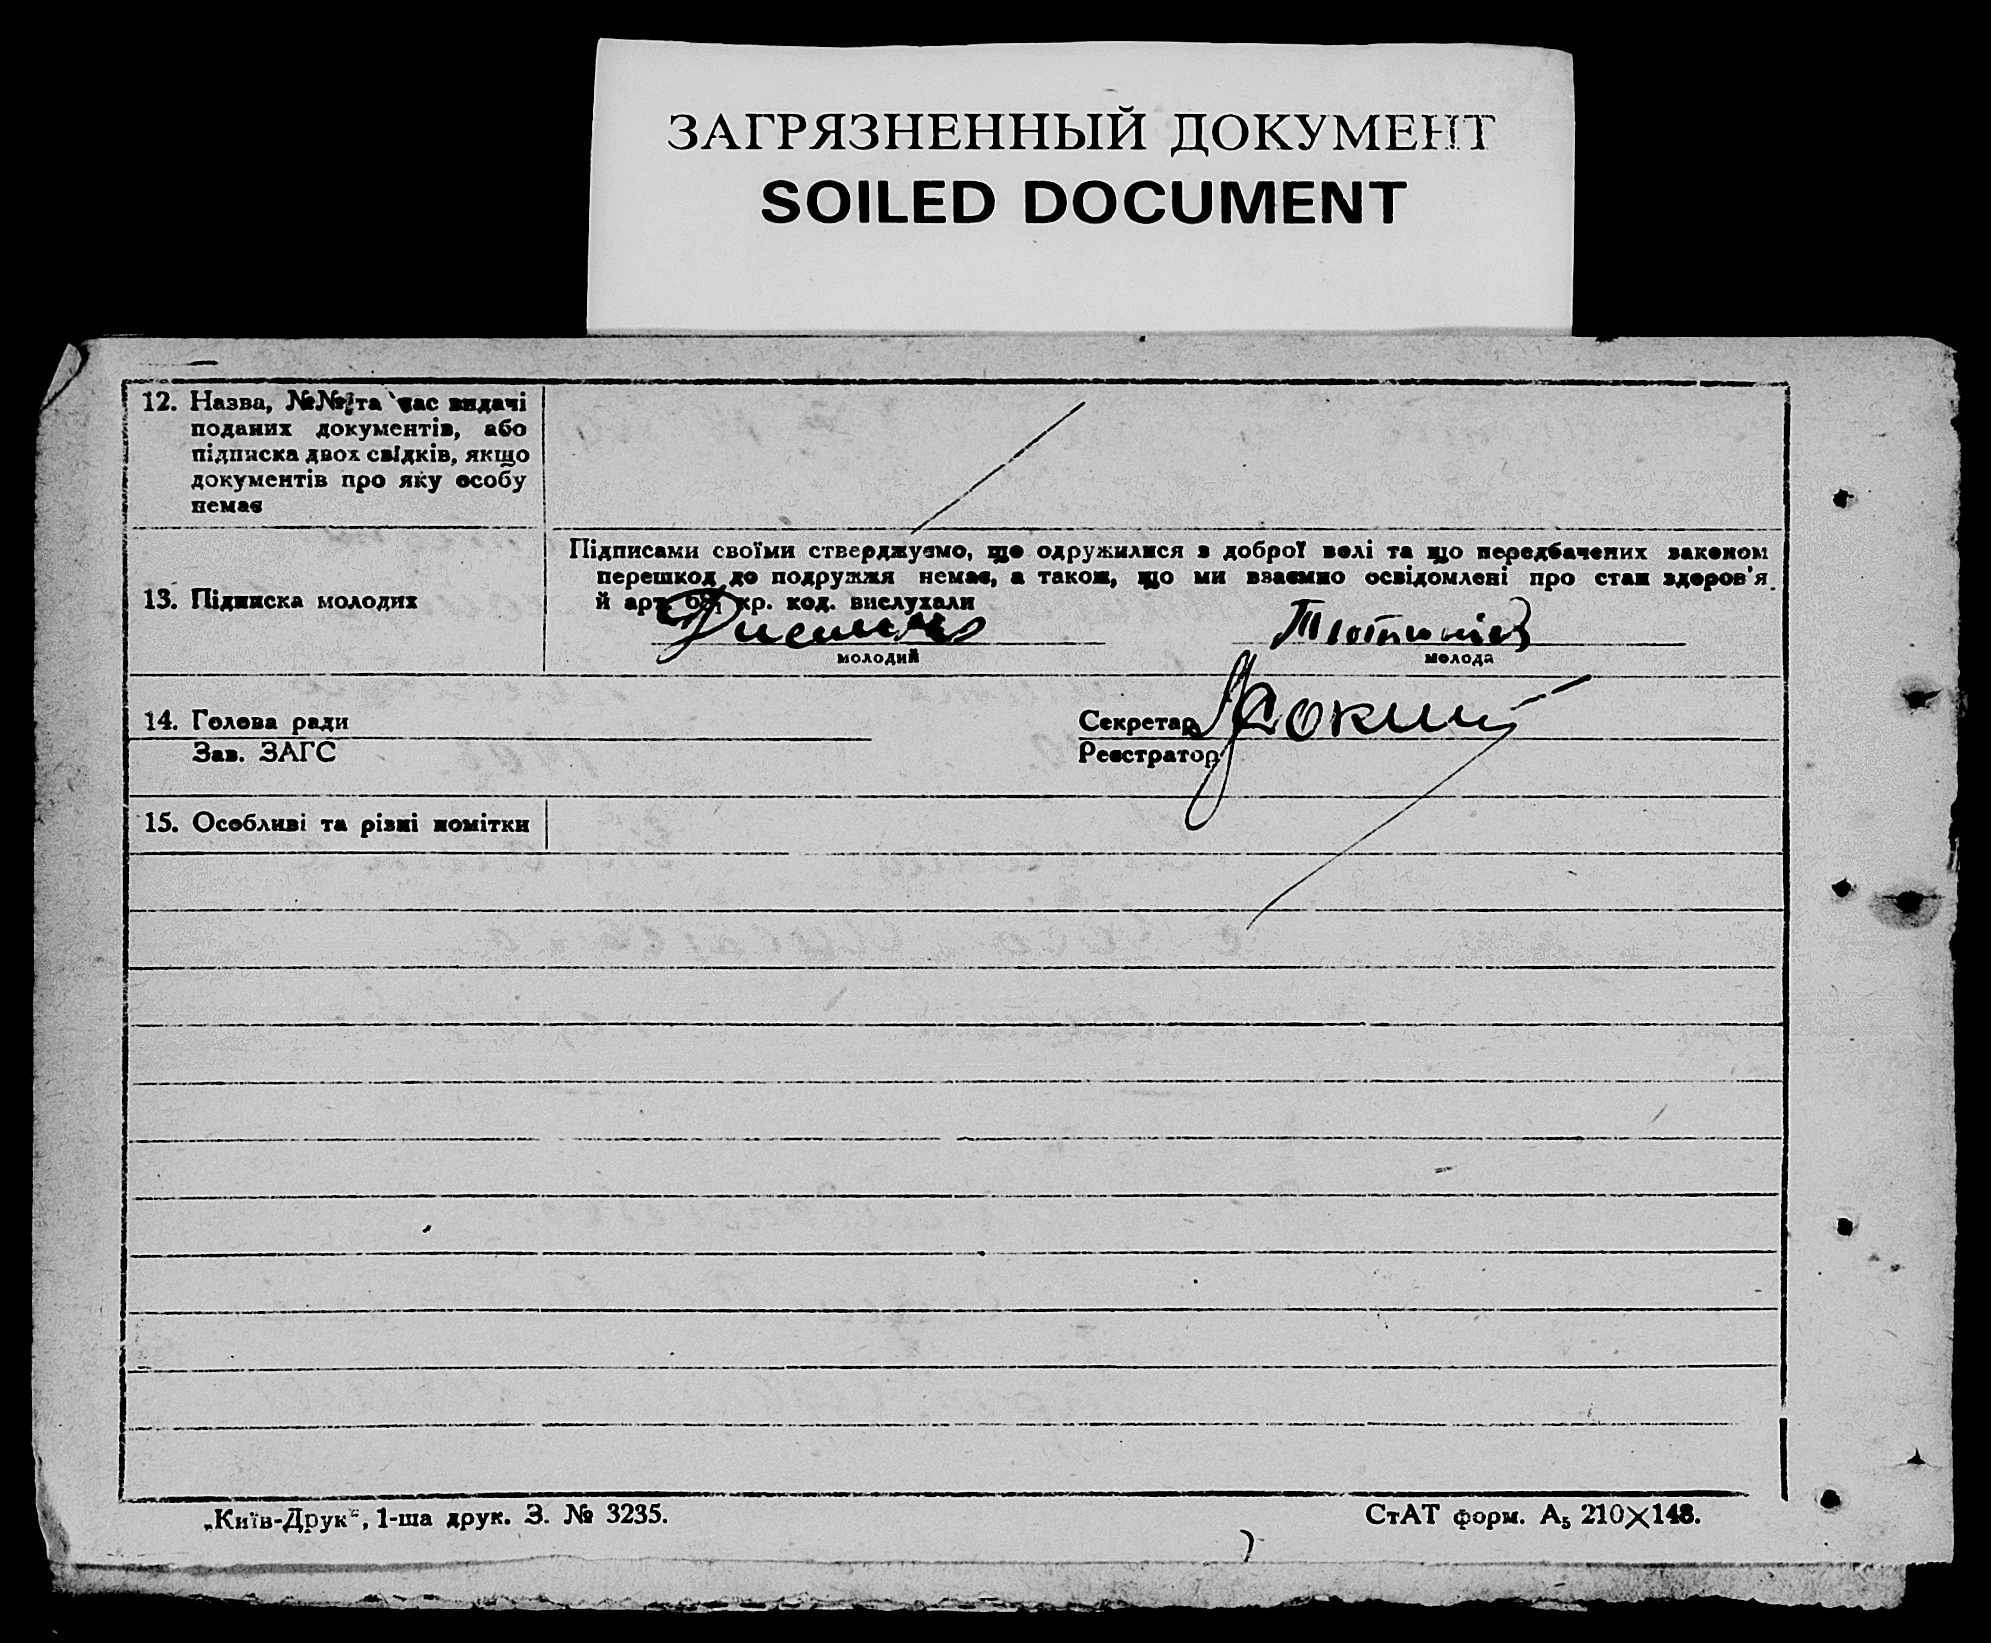 ЗАГРЯЗНЕННЫЙ ДОКУМЕНТ
SOILED DOCUMENT
12. Назва, №№ та час видачі
поданих документів, або
підписка двох свідків, якщо
документів про яку особу
немає
Підписами своїми стверджуємо, що одружилися з доброї волі та що передбачених законом
перешкод до подружжя немає, а також, що ми взаємно освідомлені про стан здоров'я
й арт. кр. код. вислухали
13. Підписка молодих
молодий
молода
14. Голова ради
Секретар
Зав. ЗАГС
Реєстратор
15. Особливі та різні помітки
„Київ-Друк“, 1-ша друк. З. № 3235.
СтАТ форм. А5 210×148.